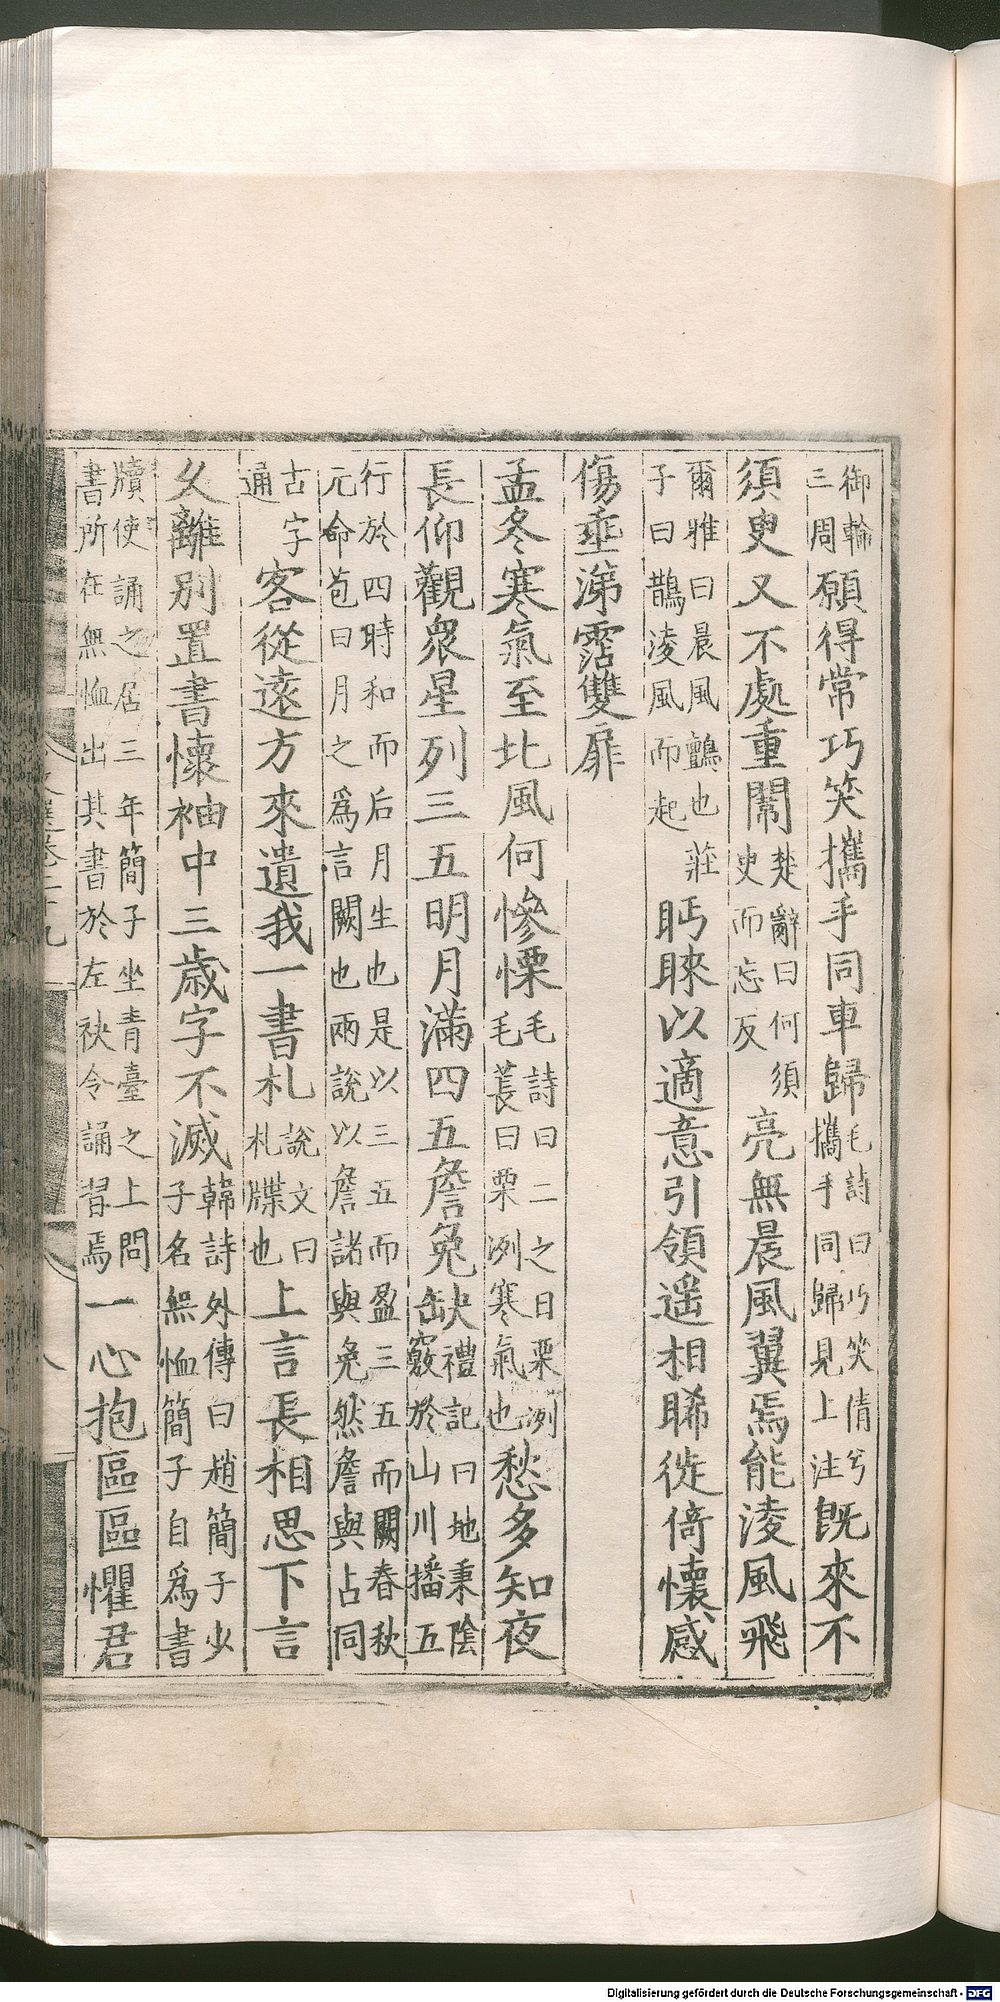 御輪三周願得常巧笑攜手同車歸毛詩曰巧笑倩兮攜手同歸見上注既來不
須臾又不處重闈楚辭曰何須史而忘反亮無晨風翼焉能淩風飛
爾雅曰晨風鸇也莊子曰鵲淩風而起眄睞以適意引領遥相睎徙倚懷感
傷垂涕霑雙扉
孟冬寒氣至北風何慘慄毛詩曰二之日栗冽毛萇曰栗冽寒氣也愁多知夜
長仰觀衆星列三五明月滿四五詹兔缺禮記曰地秉陰竅於山川播五
行於四時和而后月生也是以三五而盈三五而闕春秋元命苞曰月之爲言闕也兩說以詹諸與兔然詹與占同
古字通客從遠方來遺我一書札說文曰札牒也上言長相思下言
久離別置書懷袖中三歲字不滅韓詩外傳曰趙簡子少子名無恤簡子自爲書
牘使誦之居三年簡子坐青臺之上問書所在無恤出其書於左袂令誦習焉一心抱區區懼君
Digitalisierung gefördert durch die Deutsche Forschungsgemeinschaft - DFG